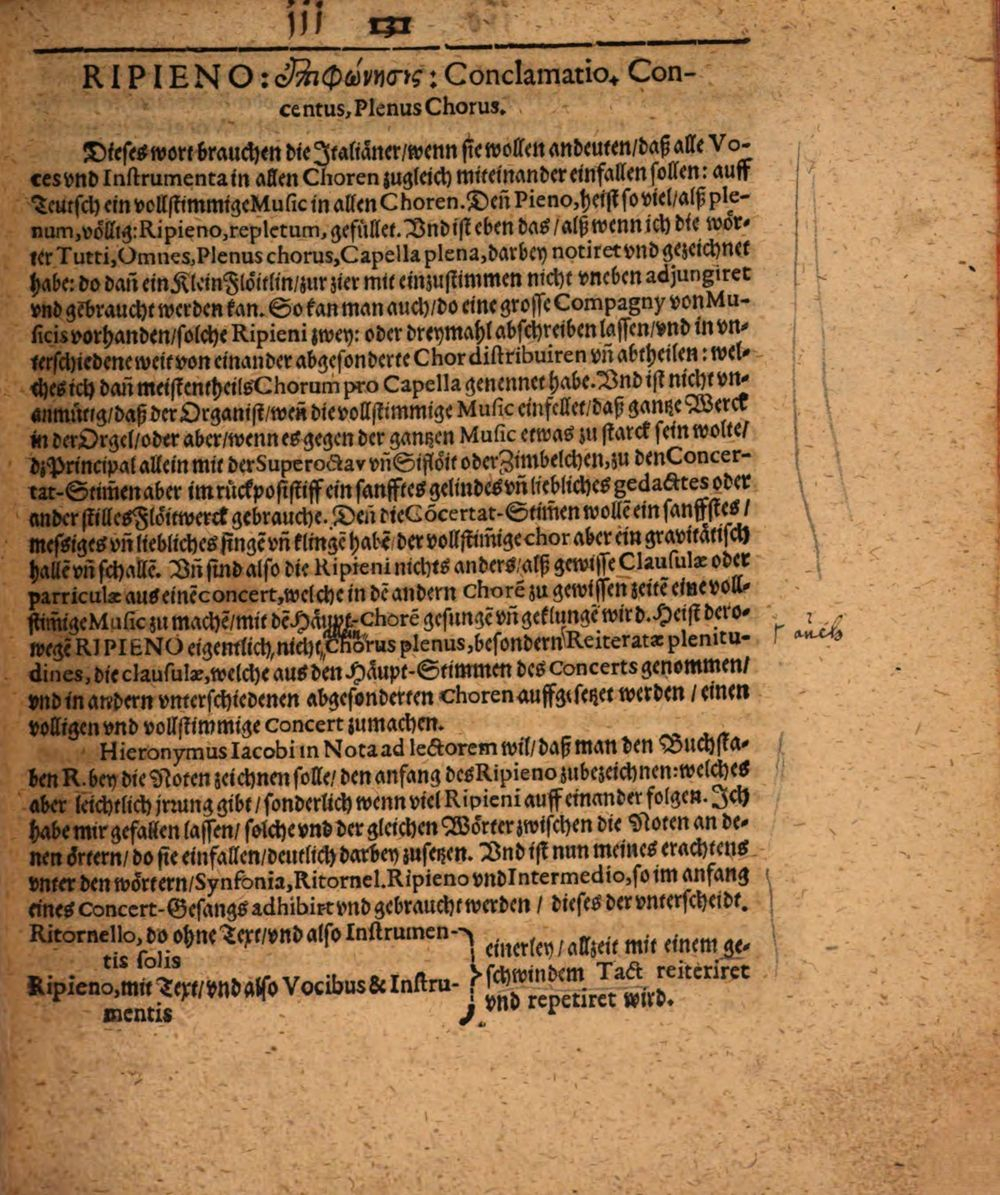 jjj 131
RIPIENO: ἐπιφώνησις: Conclamatio. Con-
centus, Plenus Chorus.
Dieses wort brauchen die Italiäner/ wenn sie wollen andeuten/ daß alle Vo-
ces vnd Instrumenta in allen Choren zugleich miteinander einfallen sollen: auff
Teutsch ein vollstimmige Music in allen Choren. Deñ Pieno, heist so viel/ alß ple-
num, völlig: Ripieno, repletum, gefüllet. Vnd ist eben das/ alß wenn ich die wör-
ter Tutti, Omnes, Plenus chorus, Capella plena, darbey notiret vnd gezeichnet
habe: do dañ ein Klein Flöitlin/ zur zier mit einzustimmen nicht vneben adjungiret
vnd gebraucht werden kan. So kan man auch/ do eine grosse Compagny von Mu-
sicis vorhanden/ solche Ripieni zwey: oder dreymahl abschreiben lassen/ vnd in vn-
terschiedene weit von einander abgesonderte Chor distribuiren vñ abtheilen: wel-
ches ich dañ meistentheils Chorum pro Capella genennet habe. Vnd ist nicht vn-
anmütig/ daß der Organist/ weñ die vollstimmige Music einfellet/ daß gantze Werck
in der Orgel/ oder aber/ wenn es gegen der gantzen Music etwas zu starck sein wolte/
dz Principal allein mit der Superoctav vñ Siflöit oder Zimbelchen, zu den Concer-
tat-Stim̃en aber im rückposistiff ein sanfftes gelindes vñ liebliches gedactes oder
ander stilles Flöitwerck gebrauche. Deñ die Cõcertat-Stim̃en wollẽ ein sanfftes/
messiges vñ liebliches singẽ vñ klingẽ habẽ/ der vollstim̃ige chor aber ein gravitätisch
hallẽ vñ schallẽ. Vñ sind also die Ripieni nichts anders/ alß gewisse Clausulæ oder
parriculæ aus einẽ concert, welche in dẽ andern Chorẽ zu gewissen zeitẽ eine voll-
stim̃ige Music zu machẽ/ mit dẽ Häupt-Chorẽ gesungẽ vñ geklungẽ wird. Heist dero-
wegẽ RIPIENO eigentlich, nicht, Chorus plenus, besondern Reiteratæ plenitu-
dines, die clausulæ, welche aus den Häupt-Stimmen des Concerts genommen/
vnd in andern vnterschiedenen abgesonderten Choren auffgesetzet werden / einen
volligen vnd vollstimmige Concert zumachen.
Hieronymus Iacobi in Nota ad lectorem wil/ daß man den Buchsta-
ben R. bey die Noten zeichnen solle/ den anfang des Ripieno zubezeichnen: welches
aber leichtlich jrzung gibt/ sonderlich wenn viel Ripieni auff einander folgen. Ich
habe mir gefallen lassen/ solche vnd der gleichen Wörter zwischen die Noten an de-
nen örtern/ do sie einfallen/ deutlich darbey zusetzen. Vnd ist nun meines erachtens
vnter den wörtern/ Synfonia, Ritornel. Ripieno vnd Intermedio, so im anfang
eines Concert-Gesangs adhibirt vnd gebraucht werden / dieses der vnterscheidt.
Ritornello, do ohne Text/ vnd also Instrumen-
tis solis
Ripieno, mit Text/ vnd also Vocibus & Instru-
mentis
einerley / allzeit mit einem ge-
schwindem Tact reiteriret
vnd repetiret wird.